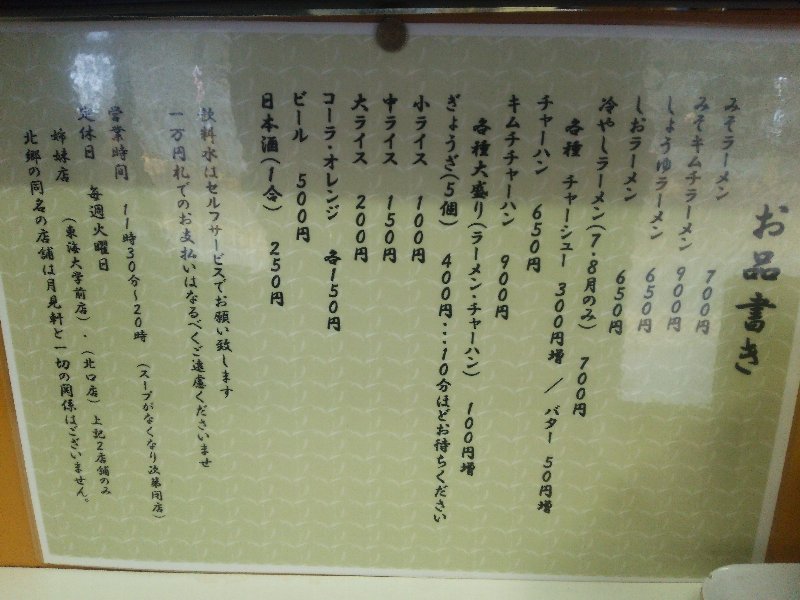 お品書き
みそラーメン 700円
みそキムチラーメン 900円
しょうゆラーメン 650円
しおラーメン 650円
冷やしラーメン(7・8月のみ) 700円
各種 チャーシュー 300円増 / バター 50円増
チャーハン 650円
キムチチャーハン 900円
各種大盛り(ラーメン・チャーハン) 100円増
ぎょうざ(5個) 400円・・・10分ほどお待ちください
小ライス 100円
中ライス 150円
大ライス 200円
コーラ・オレンジ 各150円
ビール 500円
日本酒(1合) 250円
飲料水はセルフサービスでお願い致します
一万円札でのお支払いはなるべくご遠慮くださいませ
営業時間 11時30分~20時 (スープがなくなり次第閉店)
定休日 毎週火曜日
姉妹店 (東海大学前店)・(北口店) 上記2店舗のみ
北郷の同名の店舗は月見軒と一切の関係はございません。